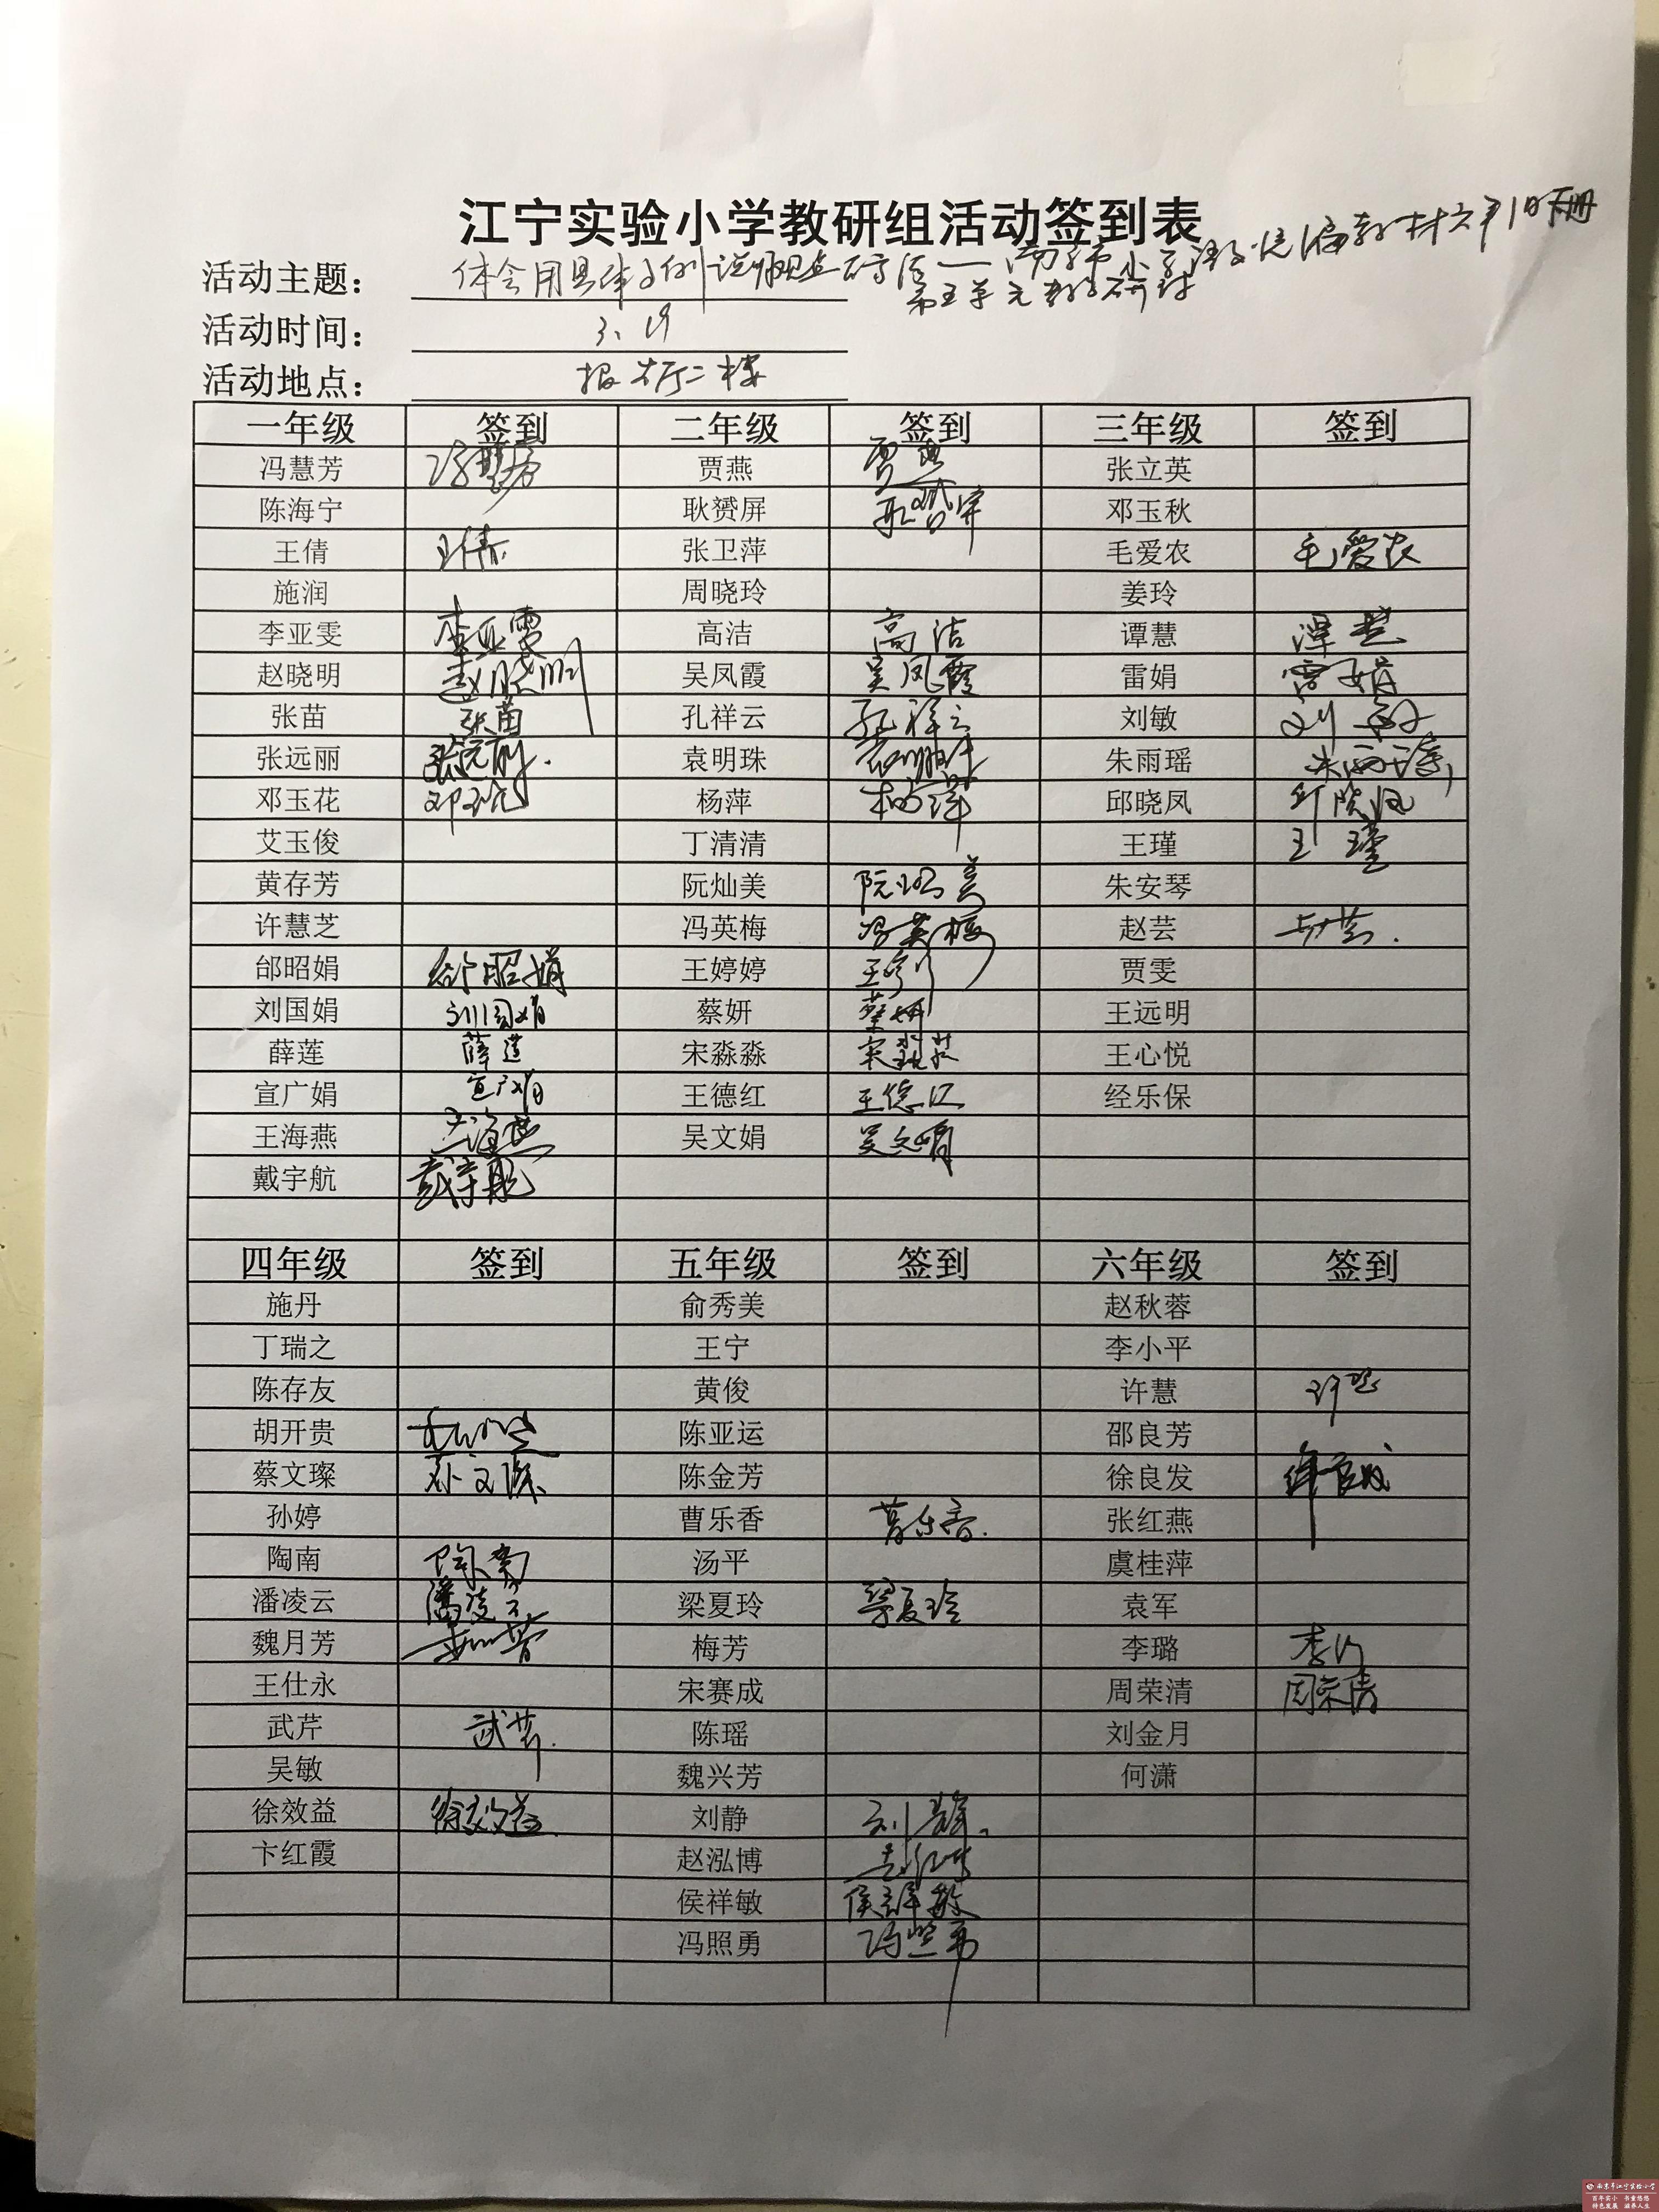 江宁实验小学教研组活动签到表
活动主题： 体会用具体事例说明观点的方法——南京市小学语文统编教材六年级下册
第五单元教学研讨
活动时间： 3.19
活动地点： 报告厅二楼
一年级 签到 二年级 签到 三年级 签到
冯慧芳 冯慧芳 贾燕 贾燕 张立英
陈海宁 耿赟屏 耿赟屏 邓玉秋
王倩 王倩 张卫萍 毛爱农 毛爱农
施润 周晓玲 姜玲
李亚雯 李亚雯 高洁 高洁 谭慧 谭慧
赵晓明 赵晓明 吴凤霞 吴凤霞 雷娟 雷娟
张苗 张苗 孔祥云 孔祥云 刘敏 刘敏
张远丽 张远丽 袁明珠 袁明珠 朱雨瑶 朱雨瑶
邓玉花 邓玉花 杨萍 杨萍 邱晓凤 邱晓凤
艾玉俊 丁清清 王瑾 王瑾
黄存芳 阮灿美 阮灿美 朱安琴
许慧芝 冯英梅 冯英梅 赵芸 赵芸
邰昭娟 邰昭娟 王婷婷 王婷婷 贾雯
刘国娟 刘国娟 蔡妍 蔡妍 王远明
薛莲 薛莲 宋淼淼 宋淼淼 王心悦
宣广娟 宣广娟 王德红 王德红 经乐保
王海燕 王海燕 吴文娟 吴文娟
戴宇航 戴宇航
四年级 签到 五年级 签到 六年级 签到
施丹 俞秀美 赵秋蓉
丁瑞之 王宁 李小平
陈存友 黄俊 许慧 许慧
胡开贵 陈亚运 邵良芳
蔡文璨 蔡文璨 陈金芳 徐良发 徐良发
孙婷 曹乐香 曹乐香 张红燕
陶南 陶南 汤平 虞桂萍
潘凌云 潘凌云 梁夏玲 梁夏玲 袁军
魏月芳 梅芳 李璐 李璐
王仕永 宋赛成 周荣清 周荣清
武芹 武芹 陈瑶 刘金月
吴敏 魏兴芳 何潇
徐效益 徐效益 刘静 刘静
卞红霞 赵泓博 赵泓博
侯祥敏 侯祥敏
冯照勇 冯照勇
南京市江宁实验小学
百年实小 书童悠悠
特色发展 滋养人生